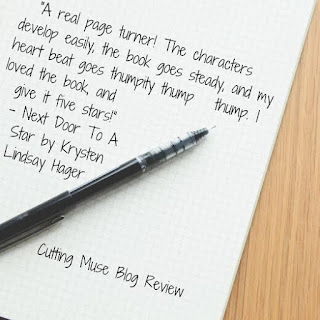 "A real page turner! The characters
develop easily, the book goes steady, and my
heart beat goes thumpity thump thump. I
loved the book, and
give it five stars!"
- Next Door To A
Star by Krysten
Lindsay Hager
Cutting Muse Blog Review